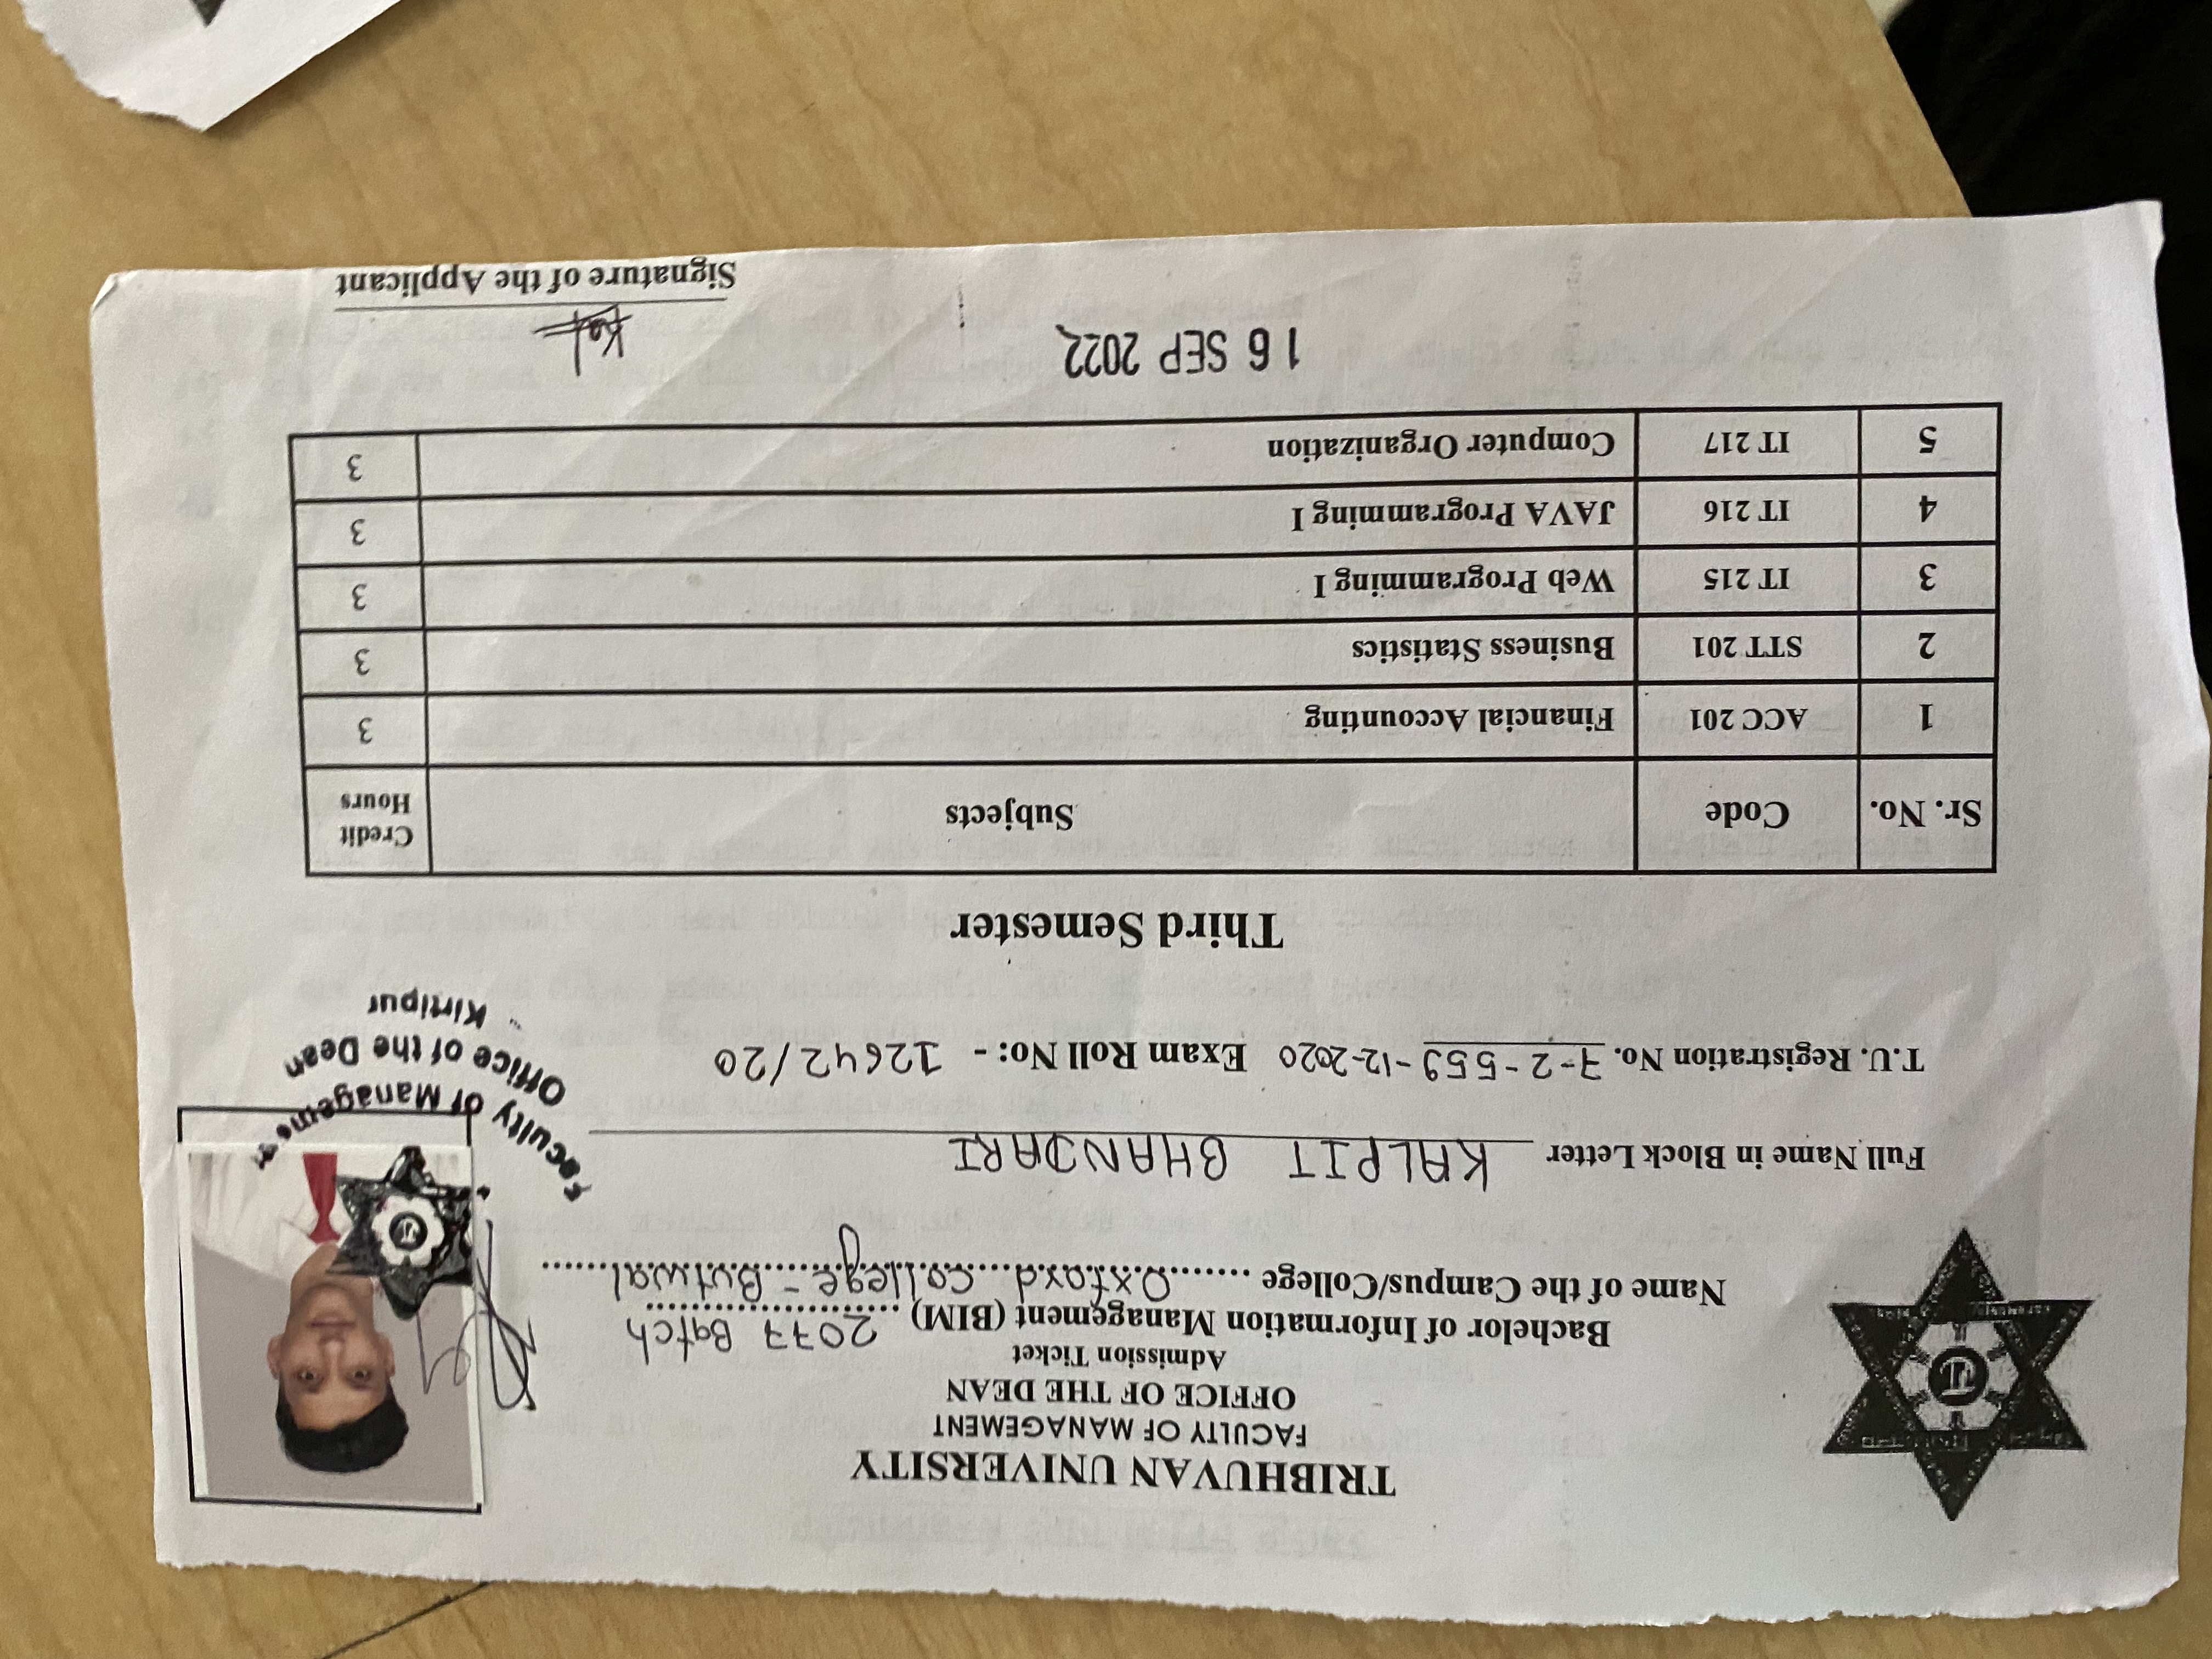 TRIBHUVAN UNIVERSITY
FACULTY OF MANAGEMENT
OFFICE OF THE DEAN
Admission Ticket
Bachelor of Information Management (BIM) ....2077 Batch....
Name of the Campus/College ........Oxford College - Butwal......
Faculty of Management
Office of the Dean
Kirtipur
Full Name in Block Letter KALPIT BHANDARI
T.U. Registration No. 7-2-559-12-2020 Exam Roll No: - 12642/20
Third Semester
Sr. No. Code Subjects Credit Hours
1 ACC 201 Financial Accounting 3
2 STT 201 Business Statistics 3
3 IT 215 Web Programming I 3
4 IT 216 JAVA Programming I 3
5 IT 217 Computer Organization 3
16 SEP 2022
Signature of the Applicant